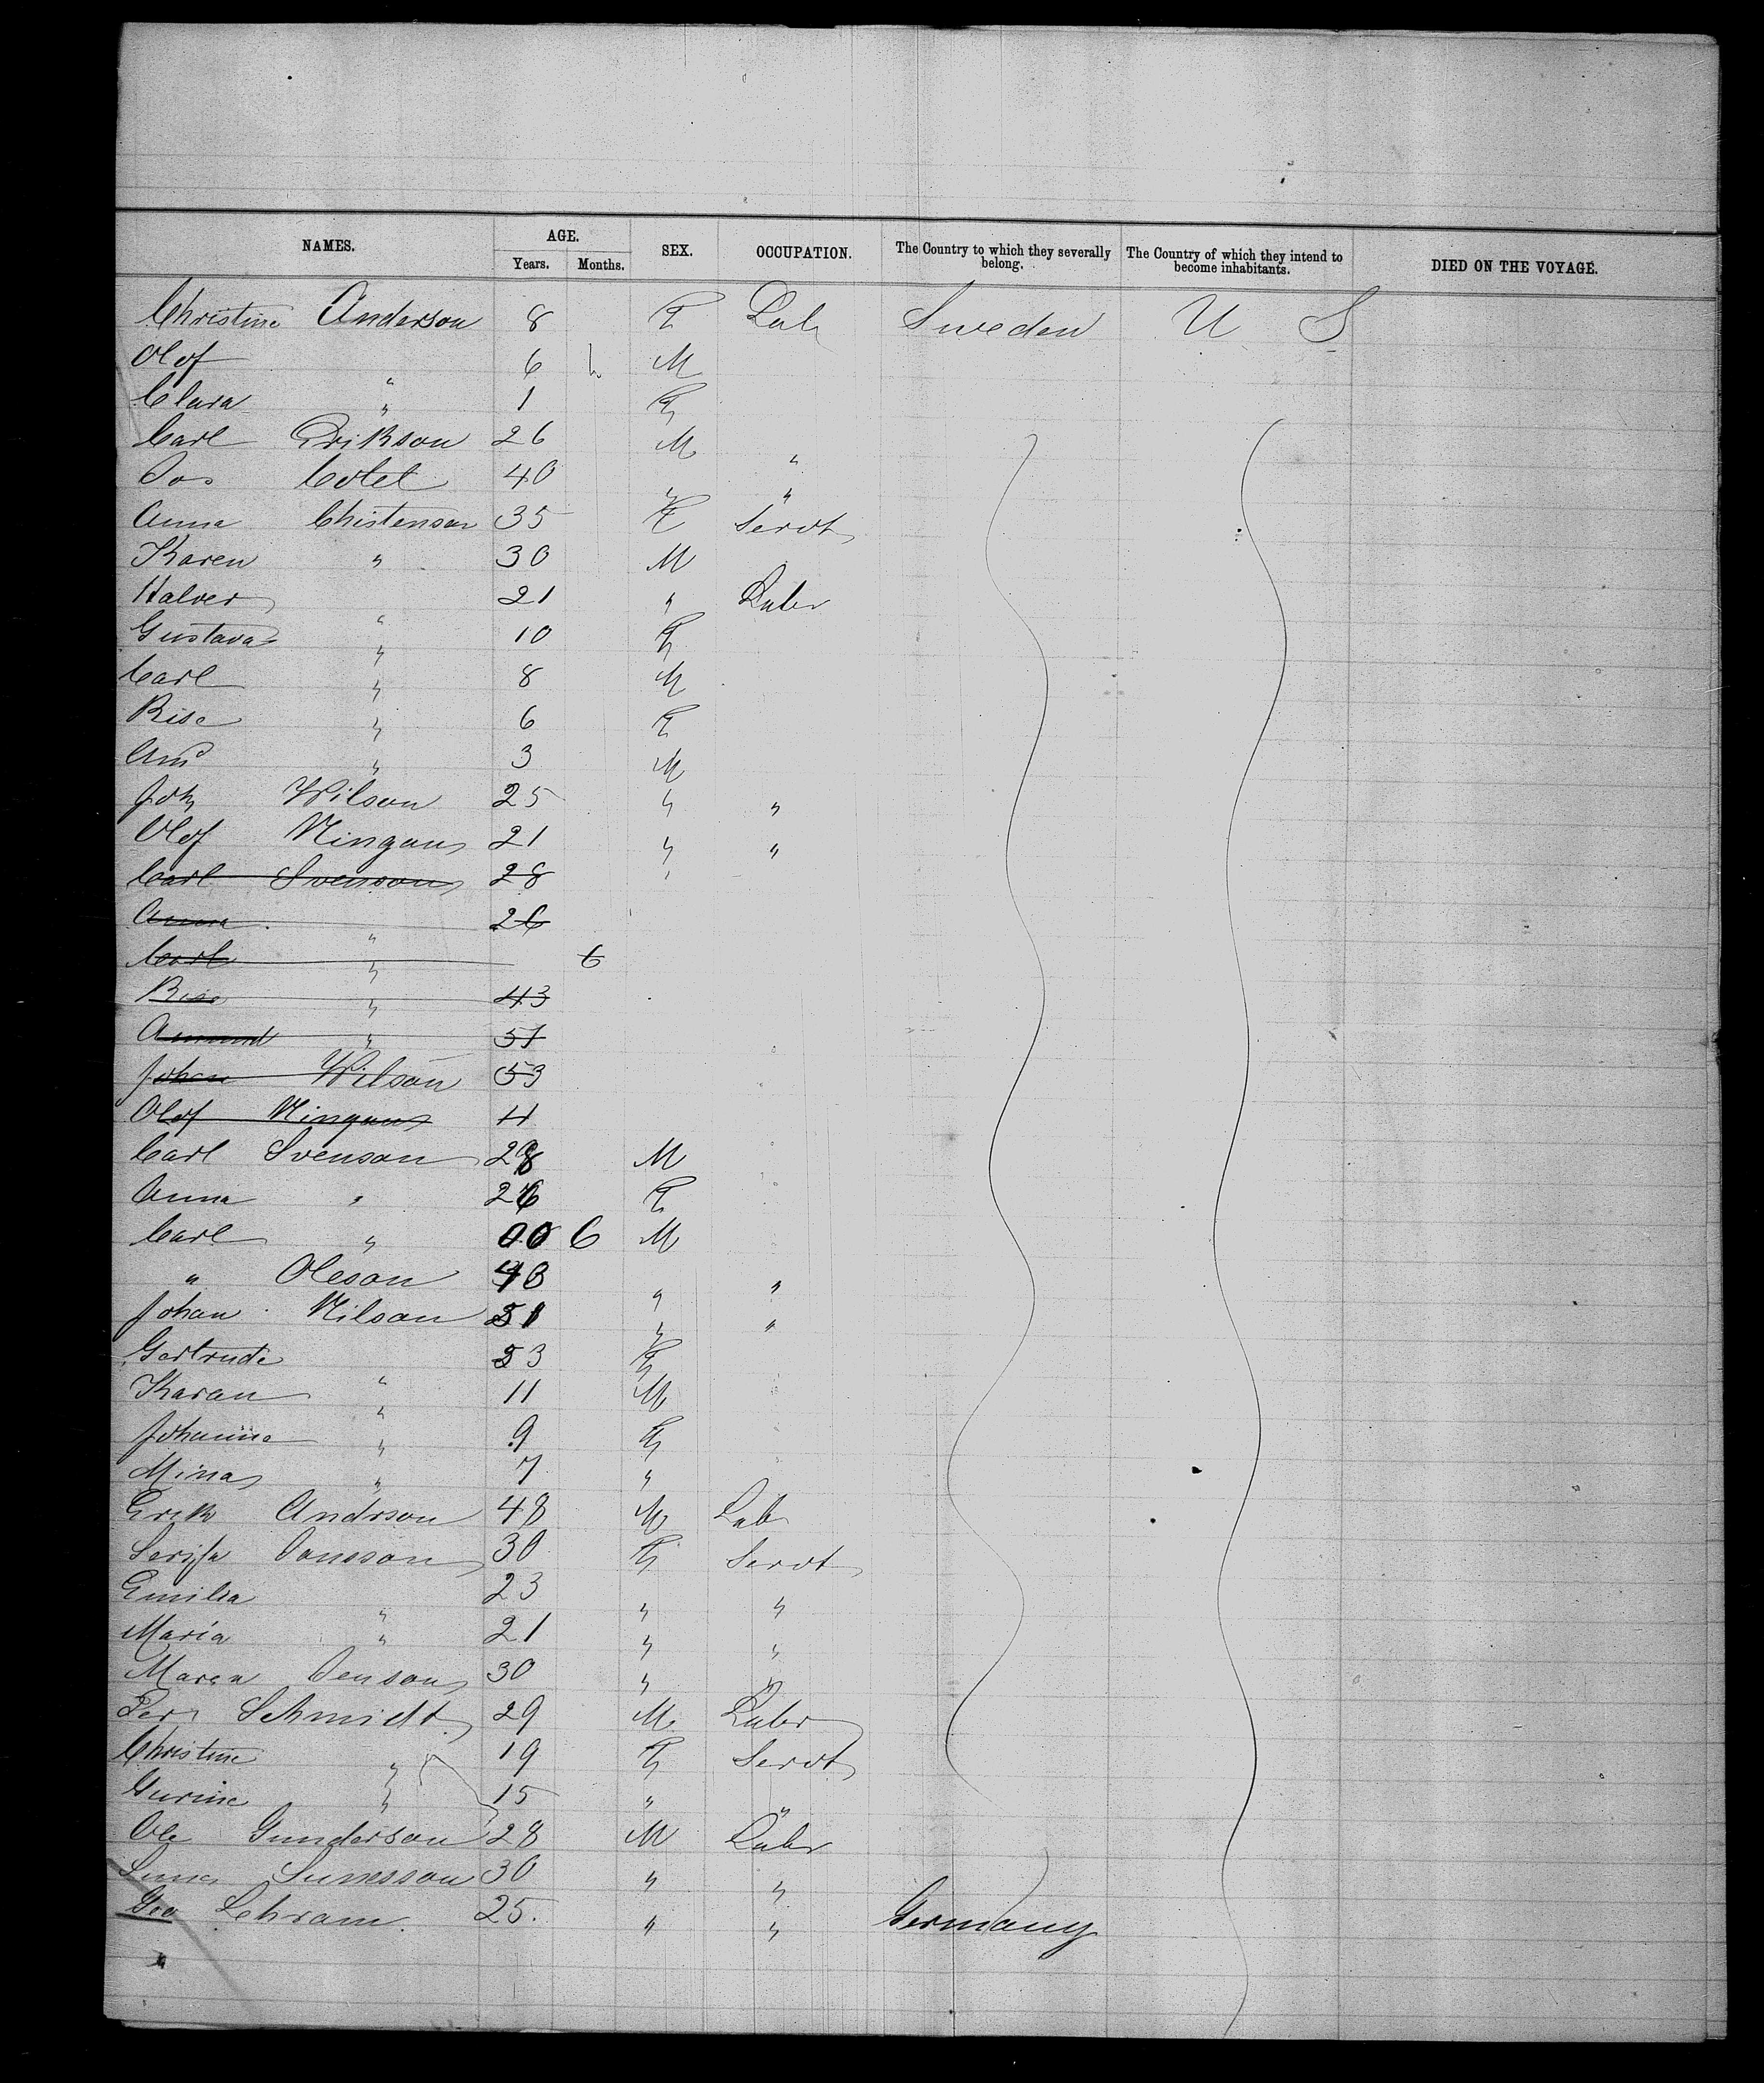 NAMES. AGE. SEX. OCCUPATION. The Country to which they severally belong. The Country of which they intend to become inhabitants. DIED ON THE VOYAGE.
Years. Months.
Christine Anderson 8 F Lab Sweden U S
Olof " 6 M
Clara " 1 F
Carl Erikson 26 M "
Jos Cotel 40 " "
Anna Christenson 35 F Servt
Karen " 30 M
Halver " 21 " Labr
Gustava " 10 F
Carl " 8 M
Rise " 6 F
" 3 M
Joh Wilson 25 " "
Olof Ningan 21 " "
Carl Svenson 28 "
Anna " 26
Carl " 6
Rise " 43
Amund " 51
Johan Wilson 53
Olof Ningan 11
Carl Svenson 28 M
Anna " 26 F
Carl " 00 6 M
" Oleson 43 " "
Johan Nilson 51 " "
Gertrude " 53 F
Karan " 11 M
Johanne " 9 F
Mina " 7 "
Erik Andrson 48 M Lab
Jonsson 30 F Servt
Emilia " 23 " "
Maria " 21 " "
Maren Jenson 30 " "
Per Schmidt 29 M Labr
Christine " 19 F Servt
Gurine " 15 " "
Ole Gunderson 28 M Labr
Sunesson 30 " "
Geo Schram. 25. " " Germany
"